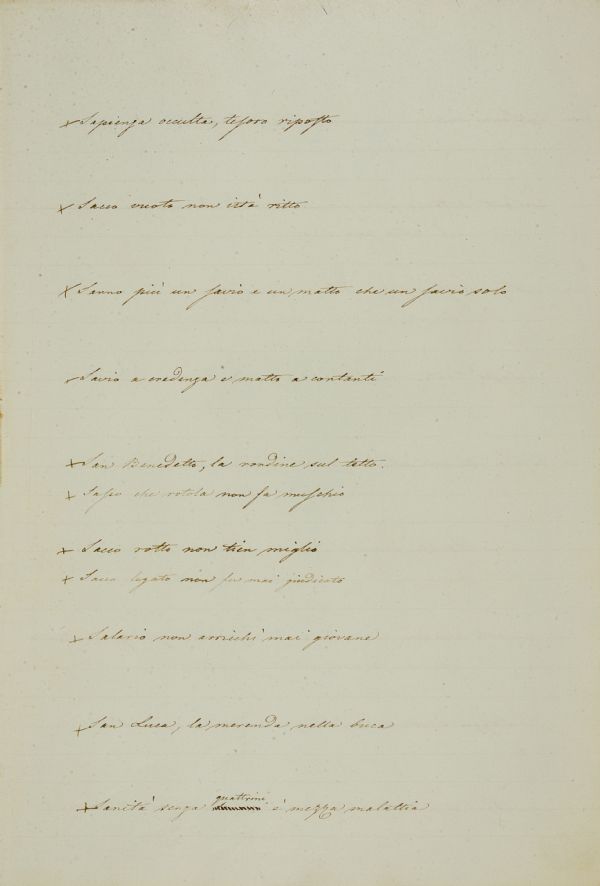 Sapienza occulta, tesoro riposto
Sacco vuoto non istà ritto
Sanno più un savio e un matto che un savio solo
Savio a credenza è matto a contanti
San Benedetto, la rondine sul tetto.
Sasso che rotola non fa muschio
Sacco rotto non tien miglio
Sacco legato non fu mai giudicato
Salario non arricchì mai giovane
San Luca, la merenda nella buca
quattrini
Sanità senza è mezza malattia